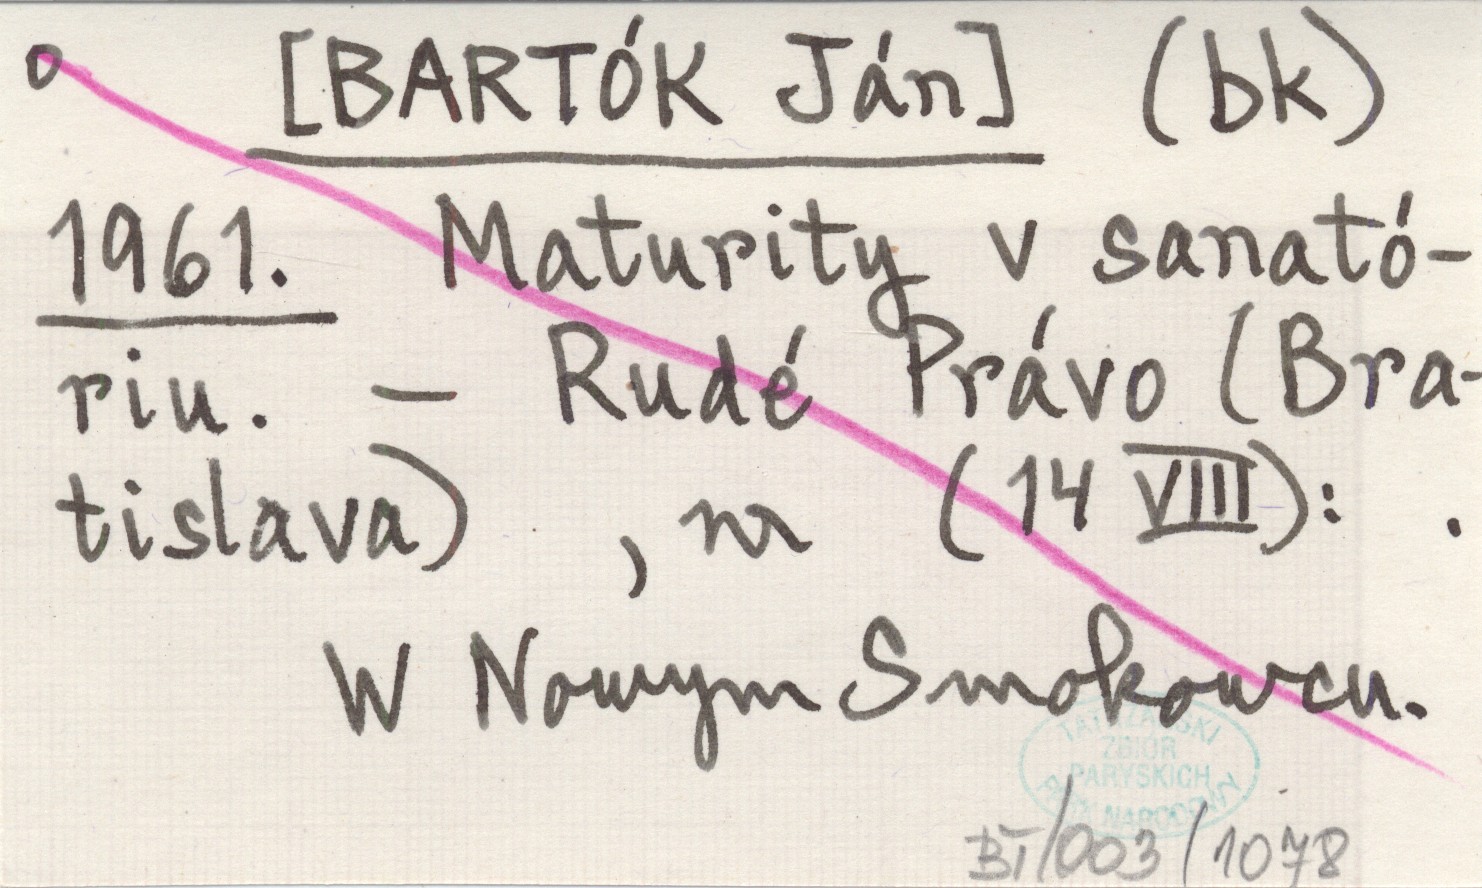 [BARTÓK Ján] (bk)
1961. Maturity v sanató-
riu. – Rudé Právo (Bra-
tislava) , nr (14 VIII): .
W Nowym Smokowcu.
TATRZAŃSKI
ZBIÓR
PARYSKICH
PARK NARODOWY
BT/003/1078